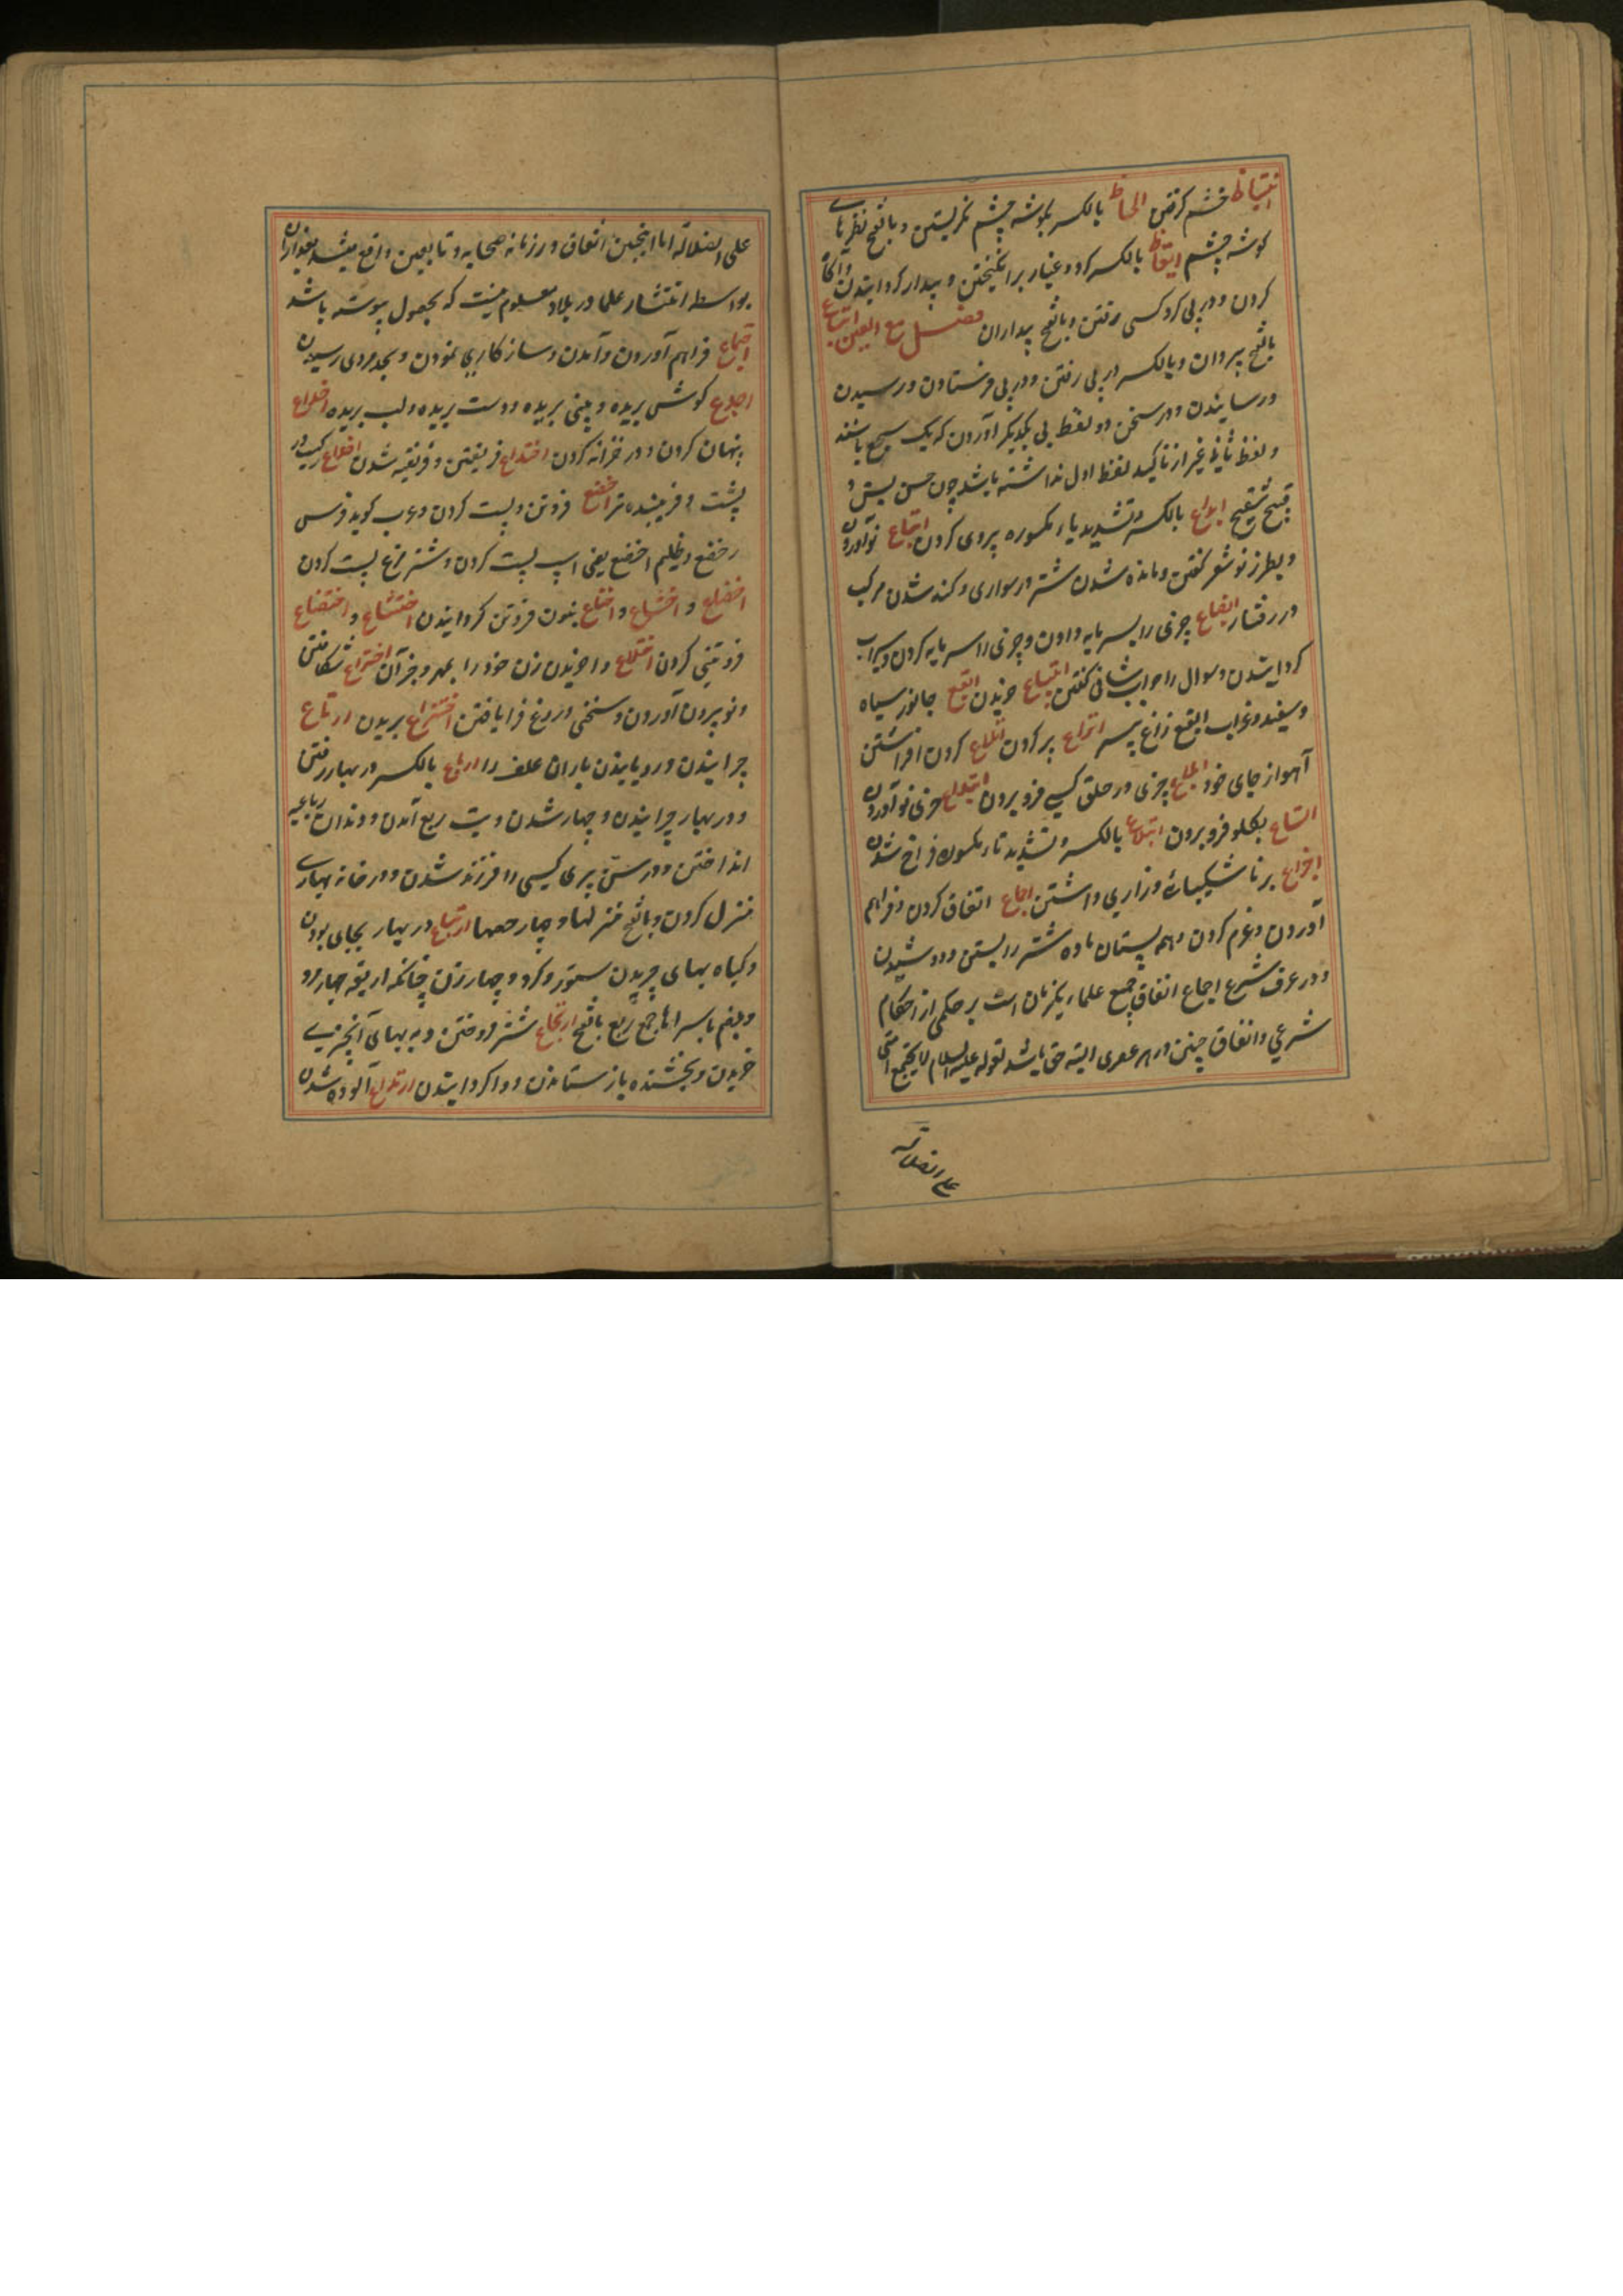 اغتیاظ خشم کرفتن الحاظ بالکسر بکوشه چشم نکریستن و بافتح نظرهای
کوشه چشم ایقاظ بالکسر کرد و غبار برانکیختن و بیدار کردانیدن و آکاه
کردن و در پی کردکسی رفتن و بافتح بیداران فصل مع العین اتباع
بافتح پیروان و بالکسر در پی رفتن و در پی فرستادن و رسیدن
و رسانیدن و در سخن دو لفظ پی یکدیکر آوردن که یک سجع باشند
و لفظ ثانی غیر از تاکید لفظ اول نداشته باشد چون حسن بسن و
قبیح شقیح ابداع بالکسر و تشدید یاء مکسوره پیروی کردن اتباع نو آوردن
و بطرز نو شعر کفتن و مانده شدن شتر در سواری و کند شدن مرکب
در رفتار ابضاع چیزی را بسرمایه دادن و چیزی را سرمایه کردن و سیراب
کردانیدن و سوال را جواب شافی کفتن ابتیاع خریدن ابقع جانور سیاه
و سفید و غراب ابقع زاغ پیسه اتراع پر کردن اتلاع کردن افراشتن
آهو از جای خود ابلاع چیزی در حلق کسی فرو بردن ابتداع چیزی نو آوردن
اتساع بکلو فرو بردن ابتلاع بالکسر و تشدید تاء مکسوره فراخ شدن
اجزاع بر ناشکیبائی و زاری داشتن اجماع اتفاق کردن و فراهم
آوردن و عزم کردن و همه پستان ماده شتر را بستن و دوشیدن
و در عرف شرع اجماع اتفاق جمیع علماء یکزمان است بر حکمی از احکام
شرعی و اتفاق چنین در هر عصری البته حق باشد لقوله علیه السلام لا یجتمع امتی
علی الضلالة
علی الضلالة اما اینچنین اتفاق در زمانه صحابه و تابعین واقع میشد بعد از آن
بواسطه انتشار علما در بلاد معلوم نیست که بحصول پیوسته باشد
اجتماع فراهم آوردن و آمدن و سازکاری نمودن و بحد مردی رسیدن
اجدع کوش بریده و بینی بریده و دست بریده و لب بریده اخداع
پنهان کردن و در خزانه کردن اختداع فریفتن و فریفته شدن اخدع رکیست در
پشت و فریبنده‌تر اخضع فروتن و پست کردن و عرب کوید فرس
اخضع و ظلیم اخضع یعنی اسپ پست کردن و شتر مرغ پست کردن
اخضاع و اخشاع و اخناع بنون فروتن کردانیدن اختشاع و اختضاع
فروتنی کردن اختلاع واخریدن زن خود را بمهر و جز آن اختراع شکافتن
و نو بیرون آوردن و سخنی دروغ فرا بافتن اختزاع بریدن ارتاع
چرانیدن و رویانیدن باران علف را ارباع بالکسر در بهار رفتن
و در بهار چرانیدن و چهار شدن و بتب ربع آمدن و دندان رباعیه
انداختن و در سن پیری کسی را فرزند شدن و در خانه بهاری
منزل کردن و بافتح منزلها و چار حصها ارتباع در بهار بجای بودن
و کیاه بهاری چریدن ستور و کرد و چهار زدن چنانکه اربعه چهار و
و بضم با سراها جمع ربع بافتح ارتجاع شتر فروختن و به بهای آن چیزی
خریدن و بخشنده باز ستاندن و واکردانیدن ارتداع آلوده شدن